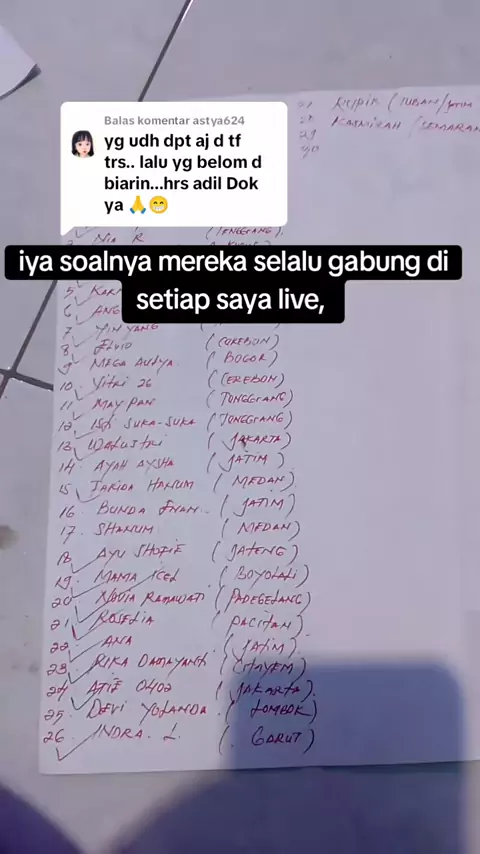 Balas komentar astya624
yg udh dpt aj d tf
trs.. lalu yg belom d
biarin...hrs adil Dok
ya 🙏😁
iya soalnya mereka selalu gabung di
setiap saya live,
KARMIRAH (SEMARAN
NIA R (TENGGRANG).
5
6 ANG
7 YIN YANG
8 ELVIO (CEREBON)
9 MEGA AULYA. (BOGOR)
10. VITRI 26 (CEREBON)
11 MAY PAR (TONGGRANG)
12 SUKA-SUKA (TONGGRANG)
13 (JAKARTA)
14. AYAH AYSHA (JATIM)
15 FARIDA HANUM (MEDAN)
16. BUNDA ENAN.. (JATIM)
17. SHANUM. (MEDAN)
18 AYU SHOFIE (JATENG)
19. MAMA ICEL (BOYOLALI)
20 NOVIA RAMAWATI (PADEGELANG)
21 ROSELIA (PACITAN)
22 ANA (JATIM)
23. RIKA DAMAYANTI
24 ATIE 0402 (JAKARTA).
25. DEVI YOLANDA. (LOMBOK)
26. INDRA. L. (. GARUT)